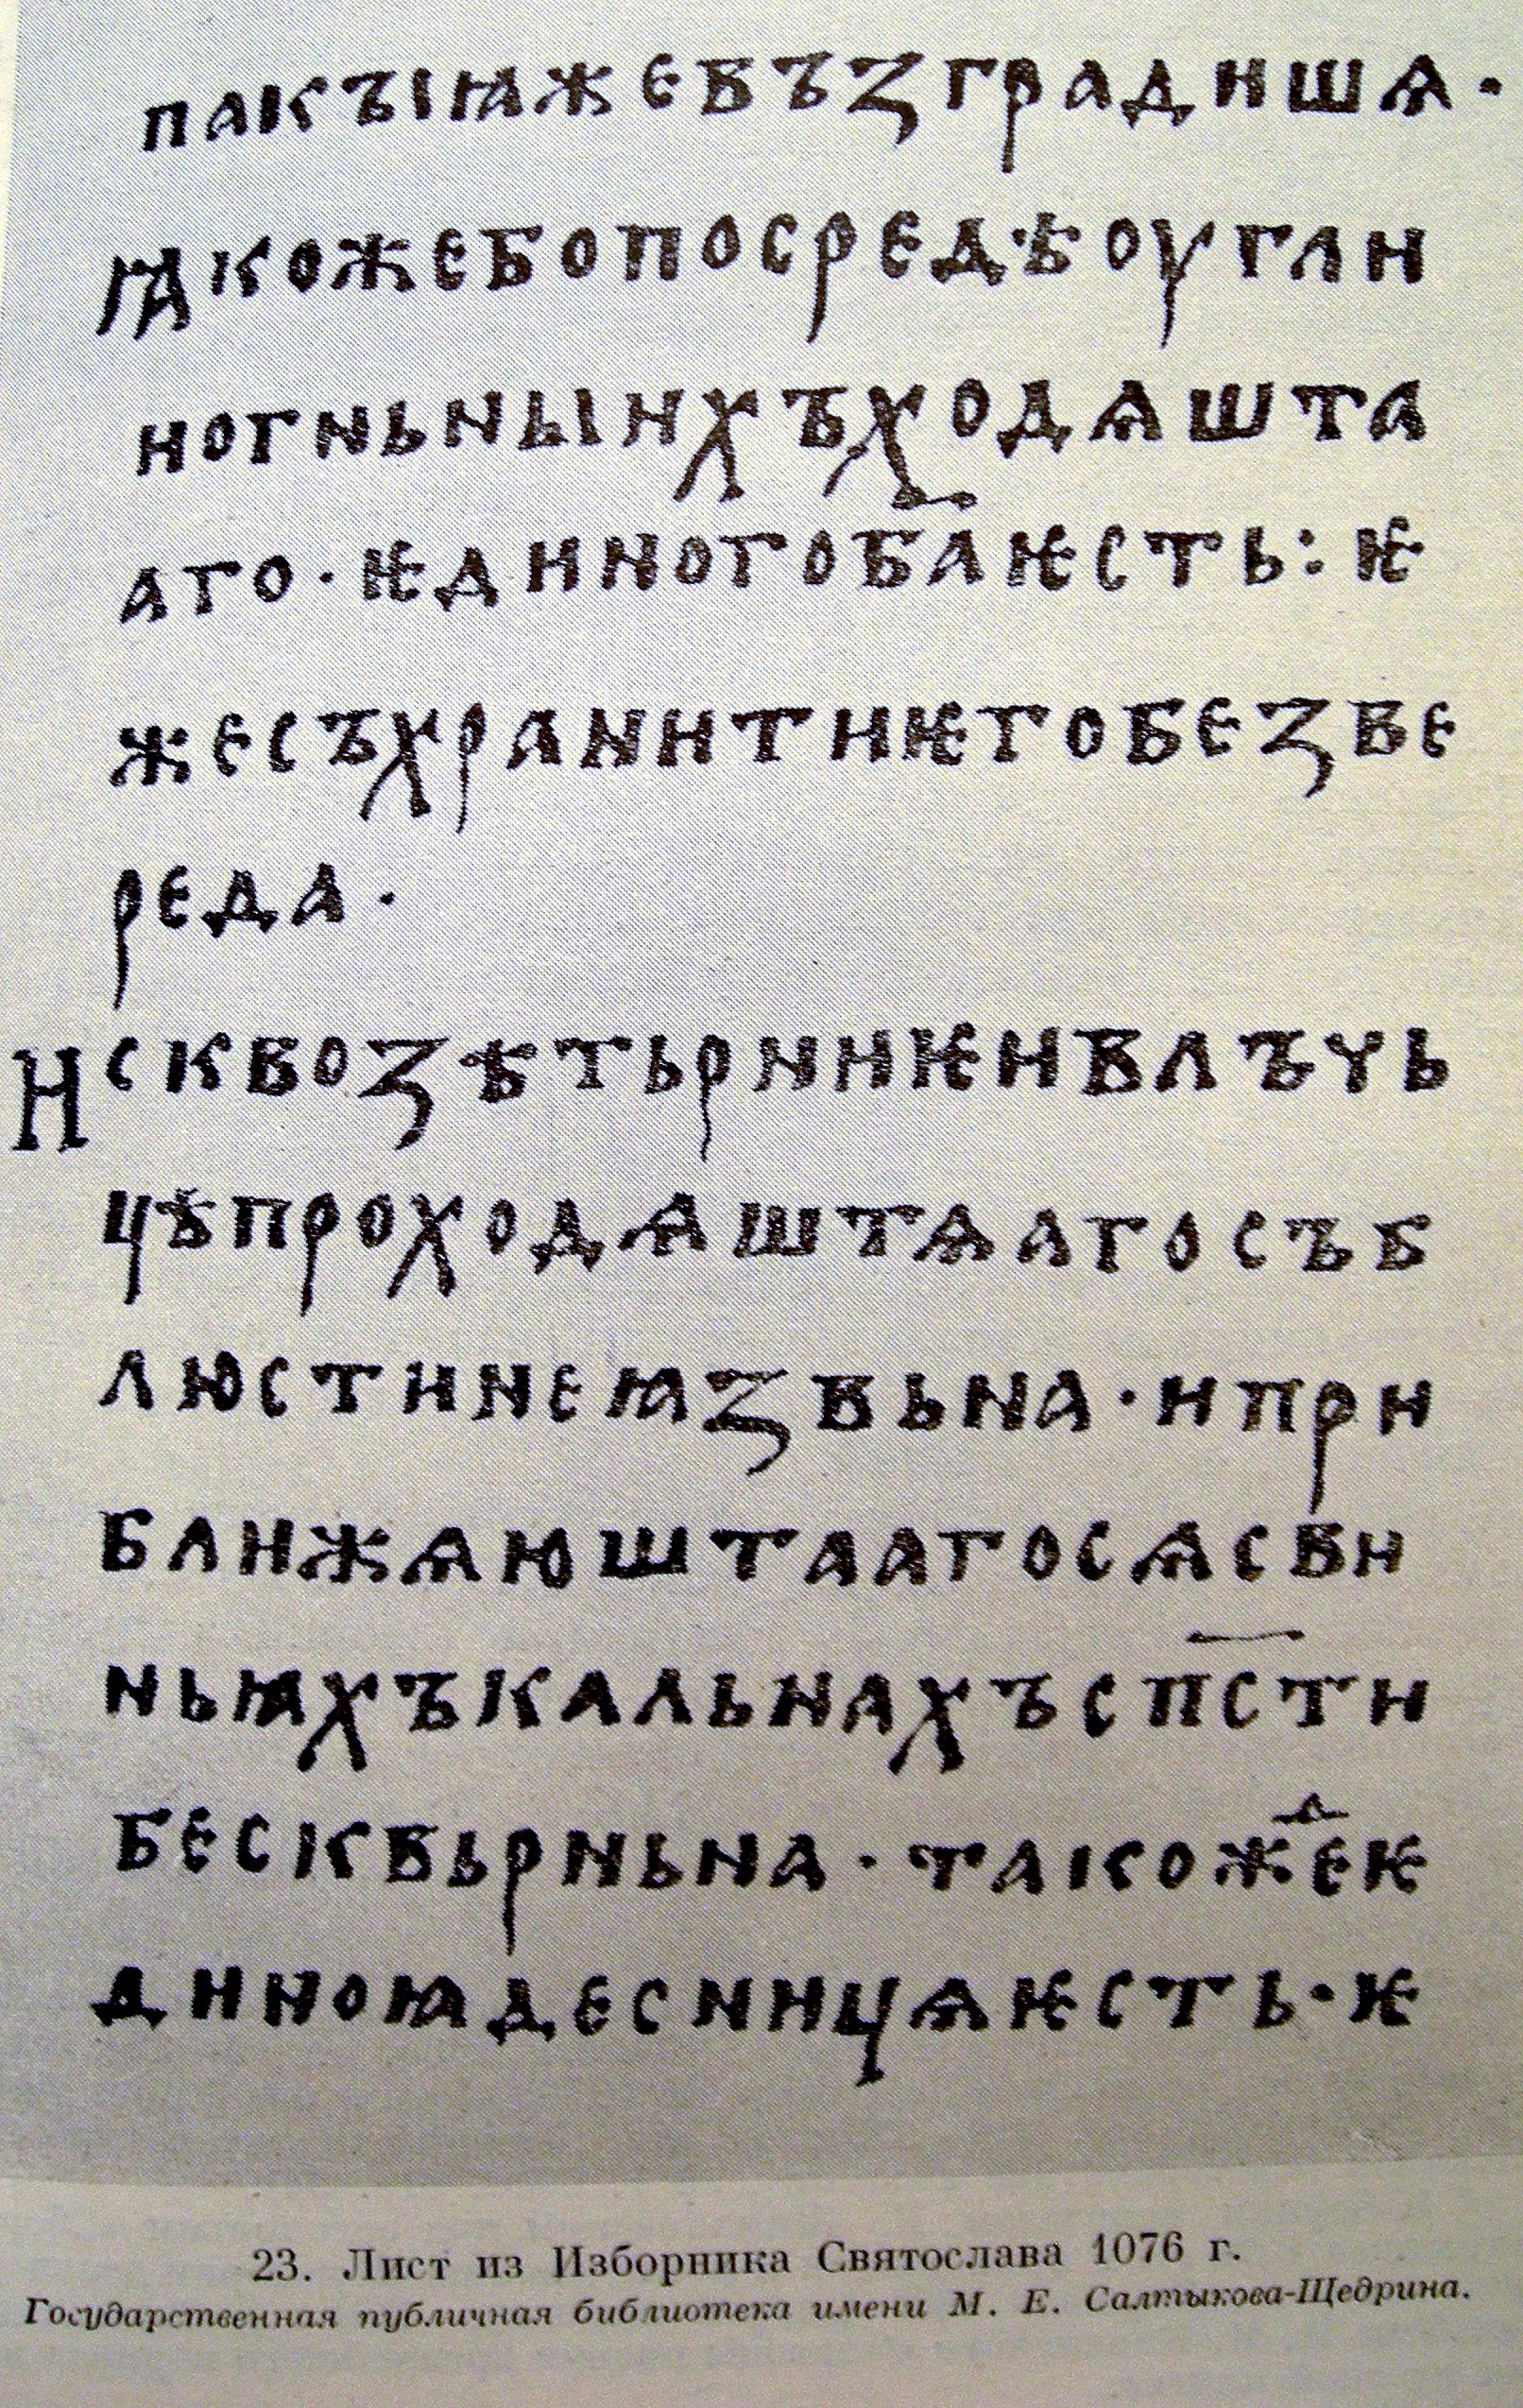 пакъıꙗжевъꙁградишѧ·
ꙗкожебопосредѣоугли
ногньньıихъходѧшта
аго·ѥдиногоба҃ѥсть:ѥ
жесъхранитиѥгобезве
реда·
исквоꙁѣтьрниѥивлъчь
цѣпроходѧштѧагосъб
люстинеꙗꙁвьна·ипри
ближѧюштаагосѧсви
ньꙗхъкальнахъсп҃сти
бесквьрньна·такожⷣеѥ
диноꙗдесницѧѥсть·ѥ
23. Лист из Изборника Святослава 1076 г.
Государственная публичная библиотека имени М. Е. Салтыкова-Щедрина.